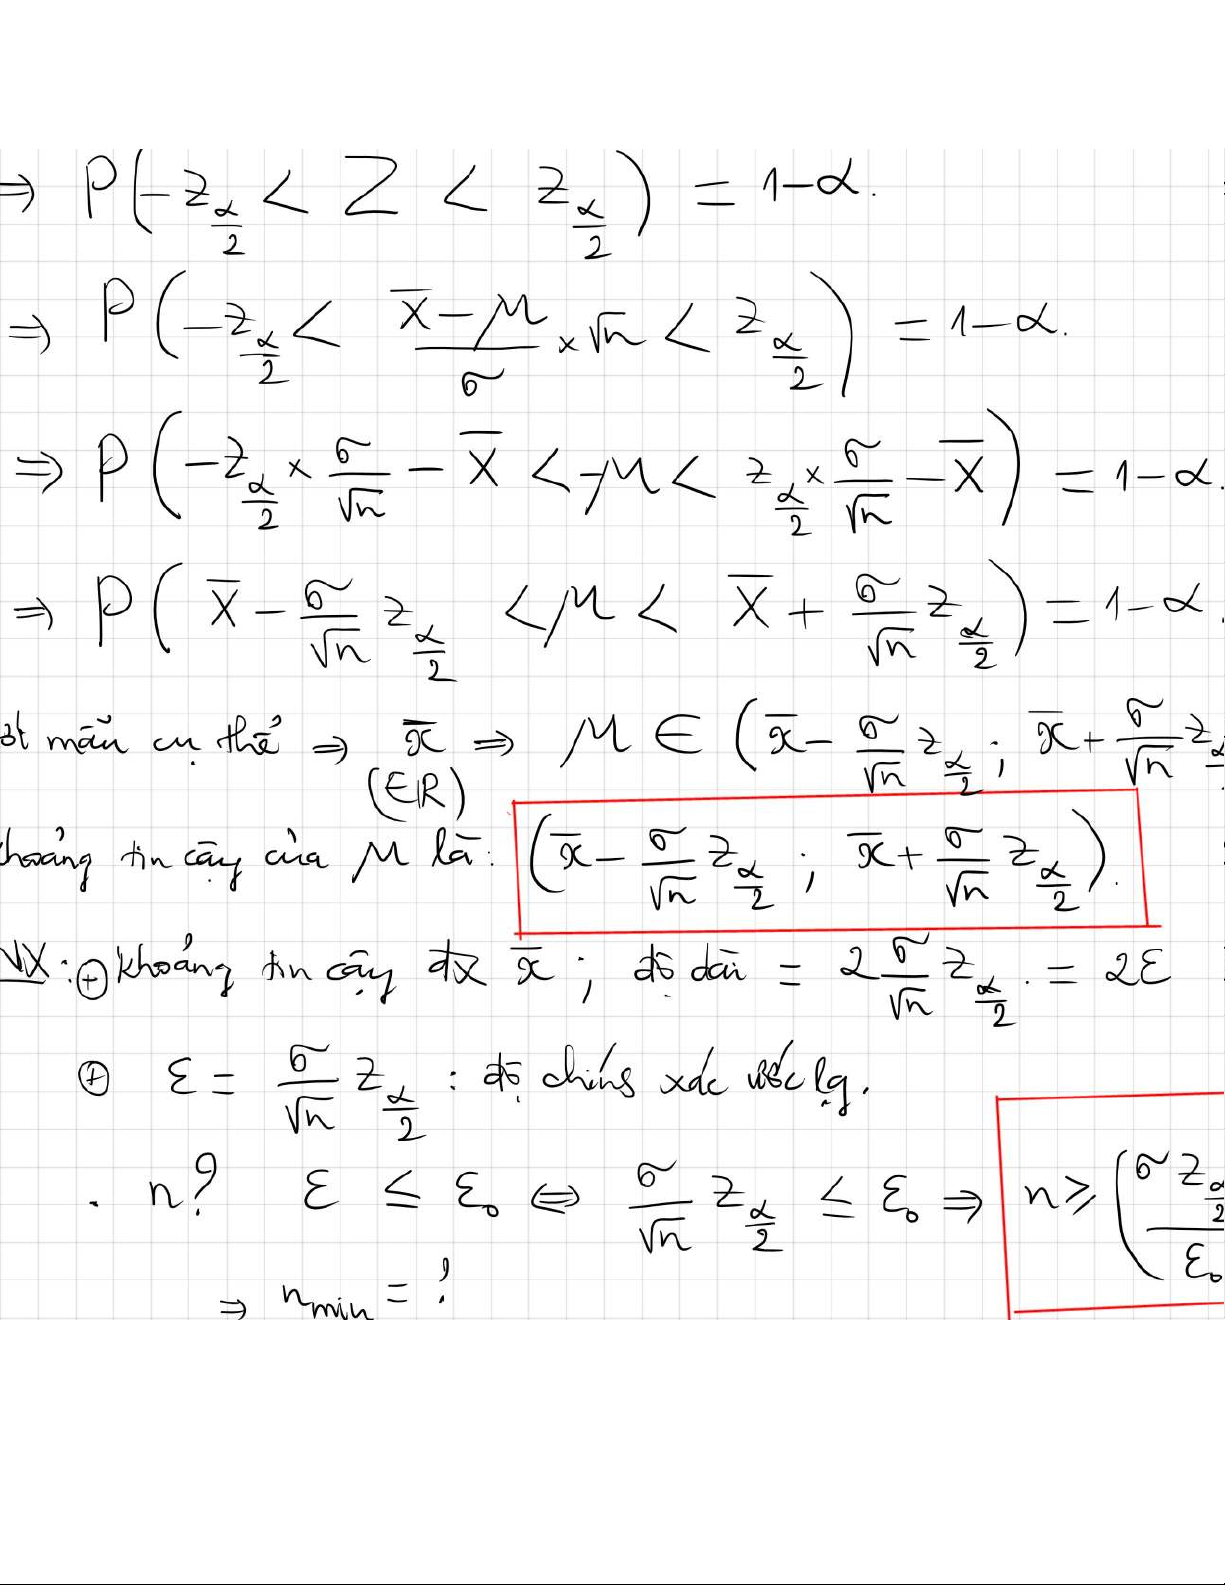 ⇒ P(-z_{α/2} < Z < z_{α/2}) = 1-α.
⇒ P(-z_{α/2} < \frac{X̄-μ}{σ} × √n < z_{α/2}) = 1-α.
⇒ P(-z_{α/2} × \frac{σ}{√n} - X̄ < -μ < z_{α/2} × \frac{σ}{√n} - X̄) = 1-α.
⇒ P(X̄ - \frac{σ}{√n} z_{α/2} < μ < X̄ + \frac{σ}{√n} z_{α/2}) = 1-α.
mẫu cụ thể ⇒ x̄ ⇒ μ ∈ (x̄ - \frac{σ}{√n} z_{α/2} ; x̄ + \frac{σ}{√n} z
(∈ℝ)
khoảng tin cậy của μ là: (x̄ - \frac{σ}{√n} z_{α/2} ; x̄ + \frac{σ}{√n} z_{α/2}).
NX: ⊕ khoảng tin cậy đx x̄ ; độ dài = 2\frac{σ}{√n} z_{α/2}. = 2ε
⊕ ε = \frac{σ}{√n} z_{α/2} : độ chính xác ước lg.
. n? ε ≤ ε₀ ⇔ \frac{σ}{√n} z_{α/2} ≤ ε₀ ⇒ n ≥ (\frac{σ z_{α/2}}{ε₀}
⇒ n_{min} = ?